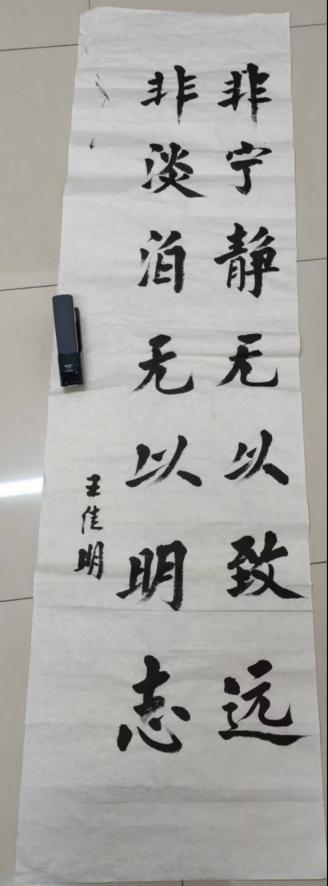 非宁静无以致远
非淡泊无以明志
王佳明